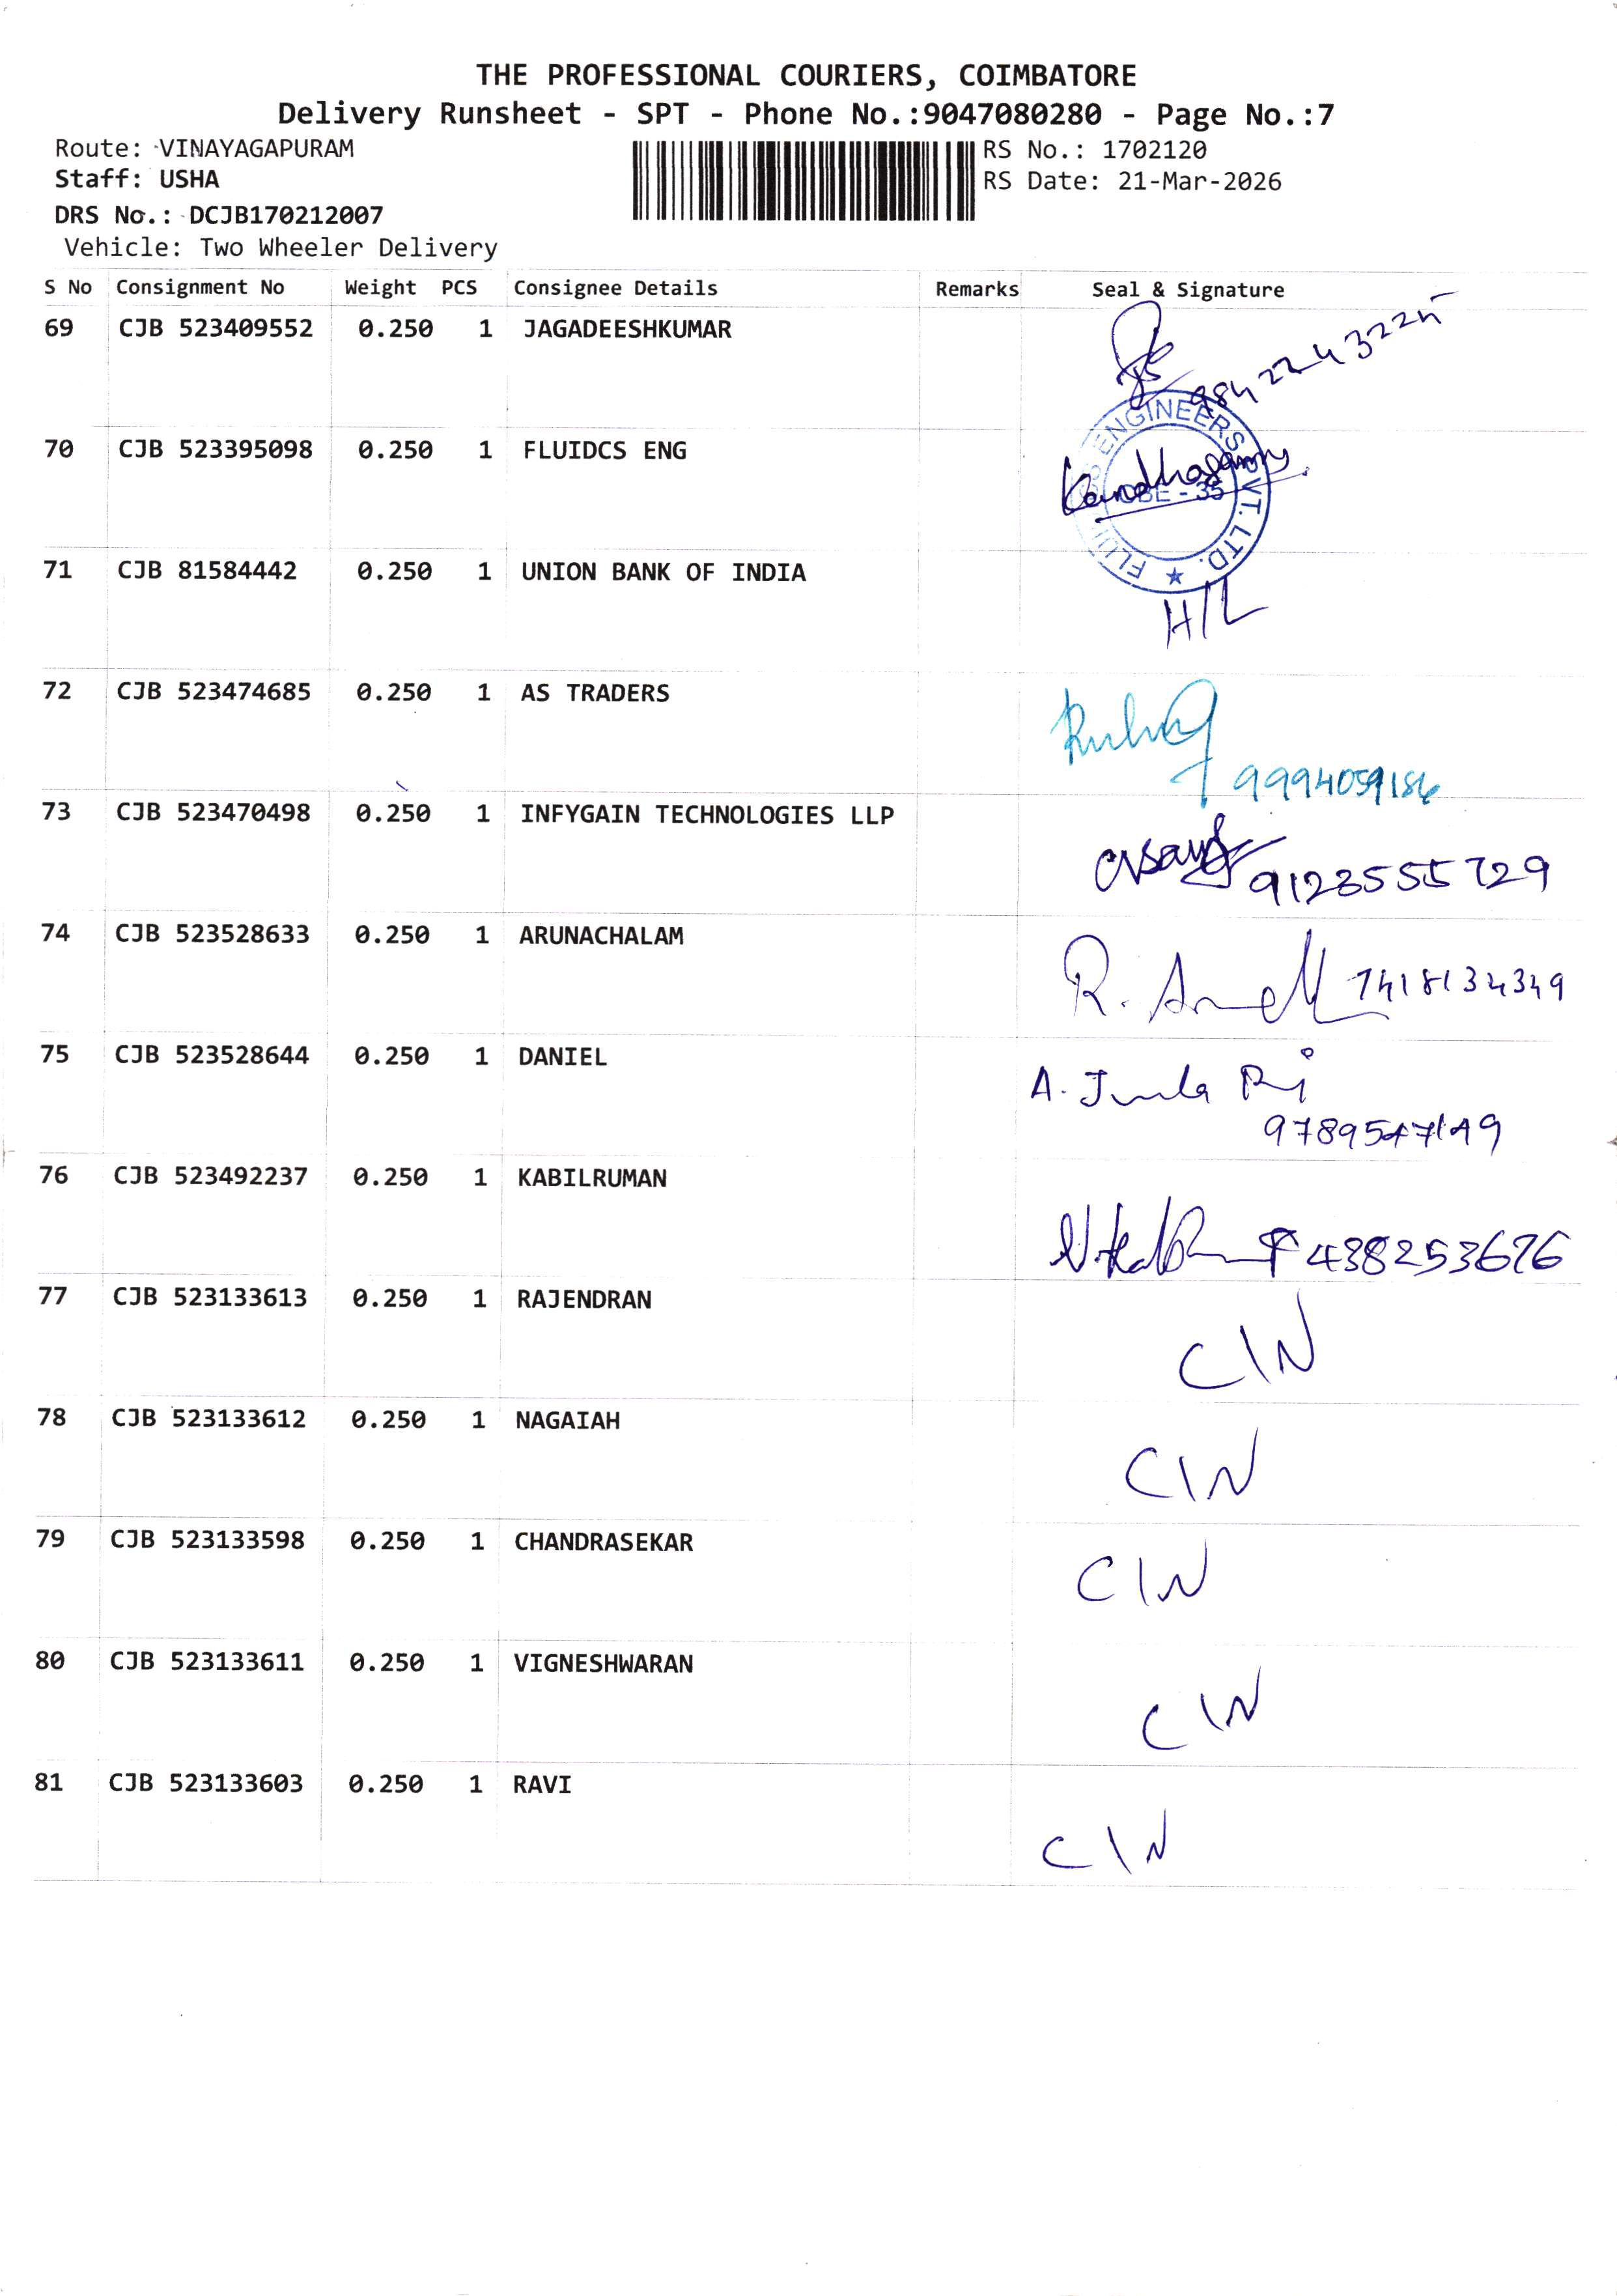 THE PROFESSIONAL COURIERS, COIMBATORE
Delivery Runsheet - SPT - Phone No.:9047080280 - Page No.:7
Route: VINAYAGAPURAM
RS No.: 1702120
Staff: USHA
RS Date: 21-Mar-2026
DRS No.: DCJB170212007
Vehicle: Two Wheeler Delivery
S No Consignment No Weight PCS Consignee Details Remarks Seal & Signature
69 CJB 523409552 0.250 1 JAGADEESHKUMAR
70 CJB 523395098 0.250 1 FLUIDCS ENG Kandhasamy
ENGINEERS PVT. LTD. ★
CBE - 35
71 CJB 81584442 0.250 1 UNION BANK OF INDIA H/L
72 CJB 523474685 0.250 1 AS TRADERS
9994059186
73 CJB 523470498 0.250 1 INFYGAIN TECHNOLOGIES LLP 9123555729
74 CJB 523528633 0.250 1 ARUNACHALAM R. 7418134349
75 CJB 523528644 0.250 1 DANIEL A.
9789547149
76 CJB 523492237 0.250 1 KABILRUMAN 438253676
77 CJB 523133613 0.250 1 RAJENDRAN C\N
78 CJB 523133612 0.250 1 NAGAIAH C\N
79 CJB 523133598 0.250 1 CHANDRASEKAR C\N
80 CJB 523133611 0.250 1 VIGNESHWARAN C\N
81 CJB 523133603 0.250 1 RAVI C\N